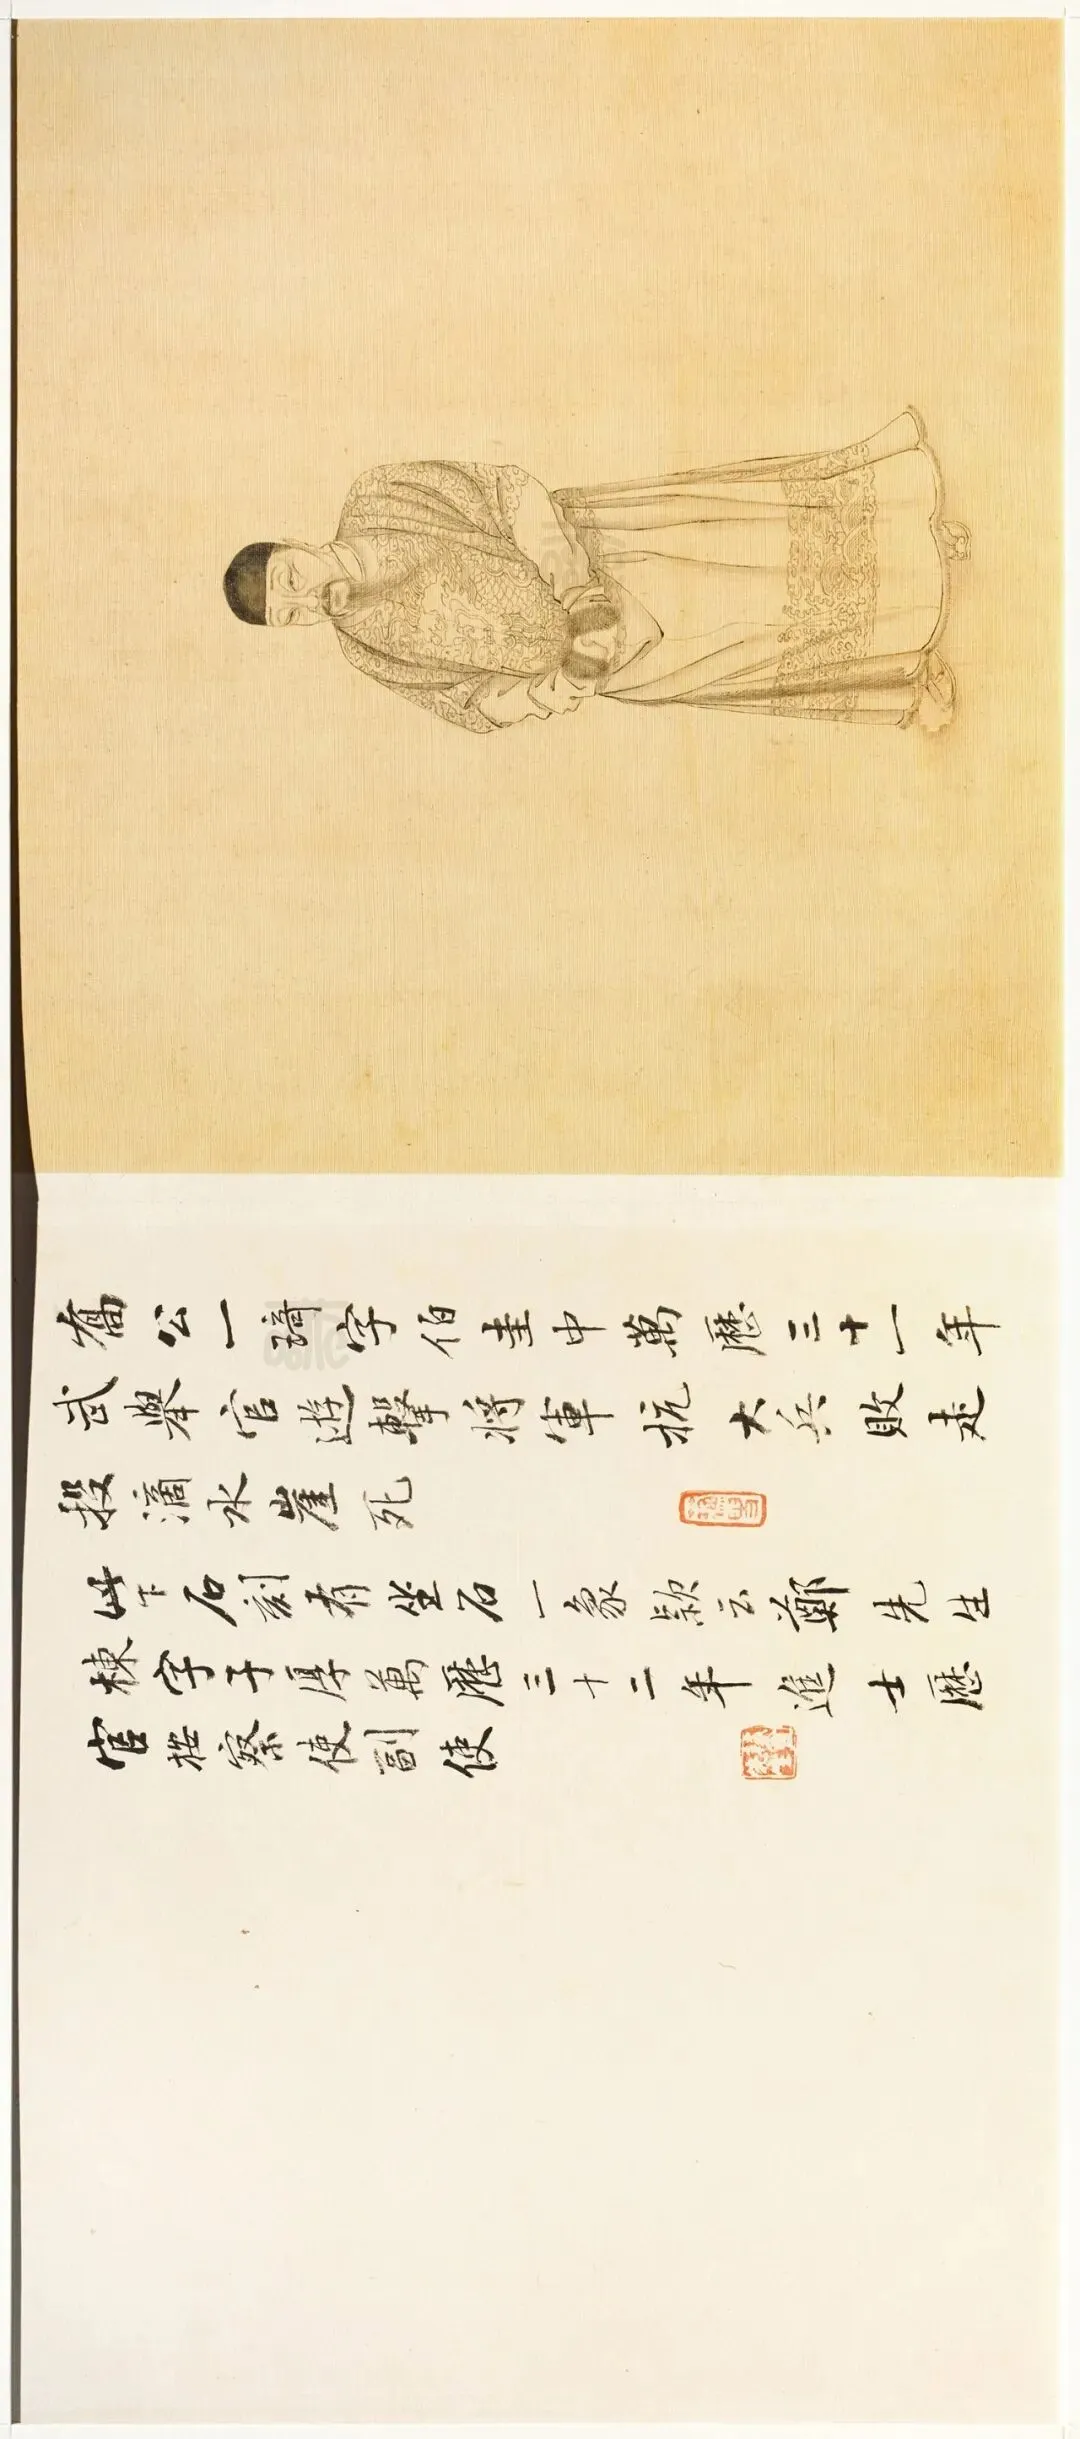 喬公一琦字伯圭中萬歷三十一年
武舉官遊擊将軍抗大兵敗走
投滴水崖死
此下石刻有坐石一象款云鄭先生
棟字子厚萬歷三十二年進士歷
官按察使副使